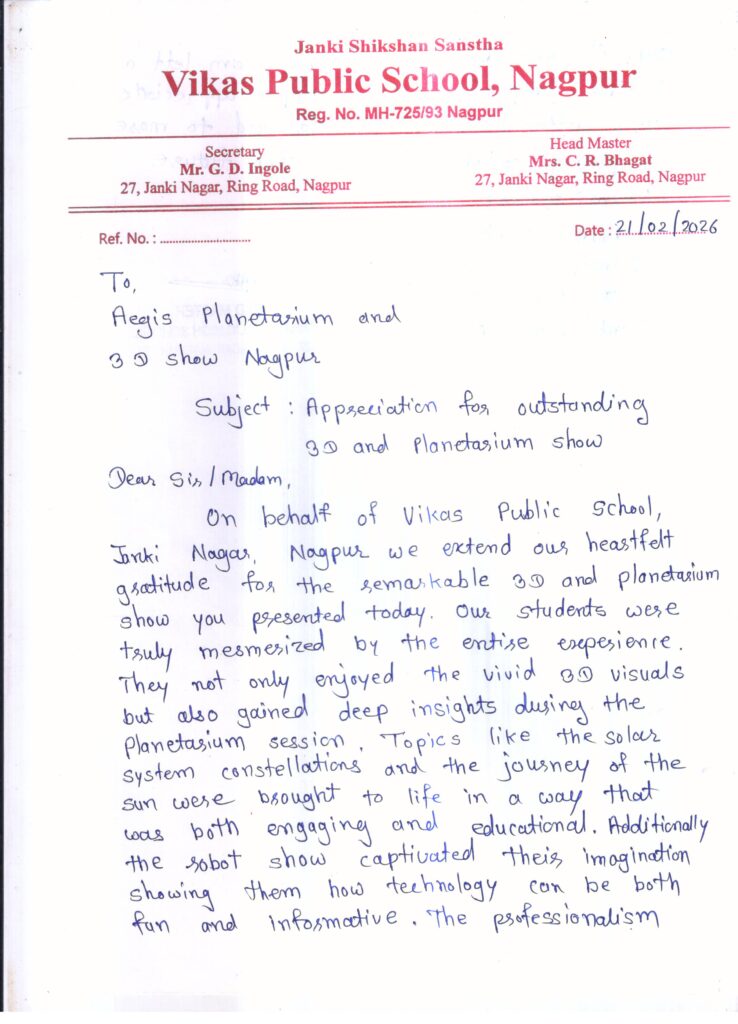 Janki Shikshan Sanstha
Vikas Public School, Nagpur
Reg. No. MH-725/93 Nagpur
Secretary
Mr. G. D. Ingole
27, Janki Nagar, Ring Road, Nagpur
Head Master
Mrs. C. R. Bhagat
27, Janki Nagar, Ring Road, Nagpur
Ref. No. : ..............................
Date : 21/02/2026
To,
Aegis Planetarium and
3D show Nagpur
Subject : Appreciation for outstanding
3D and Planetarium show
Dear Sir/Madam,
On behalf of Vikas Public School,
Janki Nagar, Nagpur we extend our heartfelt
gratitude for the remarkable 3D and planetarium
show you presented today. Our students were
truly mesmerized by the entire experience.
They not only enjoyed the vivid 3D visuals
but also gained deep insights during the
planetarium session. Topics like the solar
system constellations and the journey of the
sun were brought to life in a way that
was both engaging and educational. Additionally
the robot show captivated their imagination
showing them how technology can be both
fun and informative. The professionalism